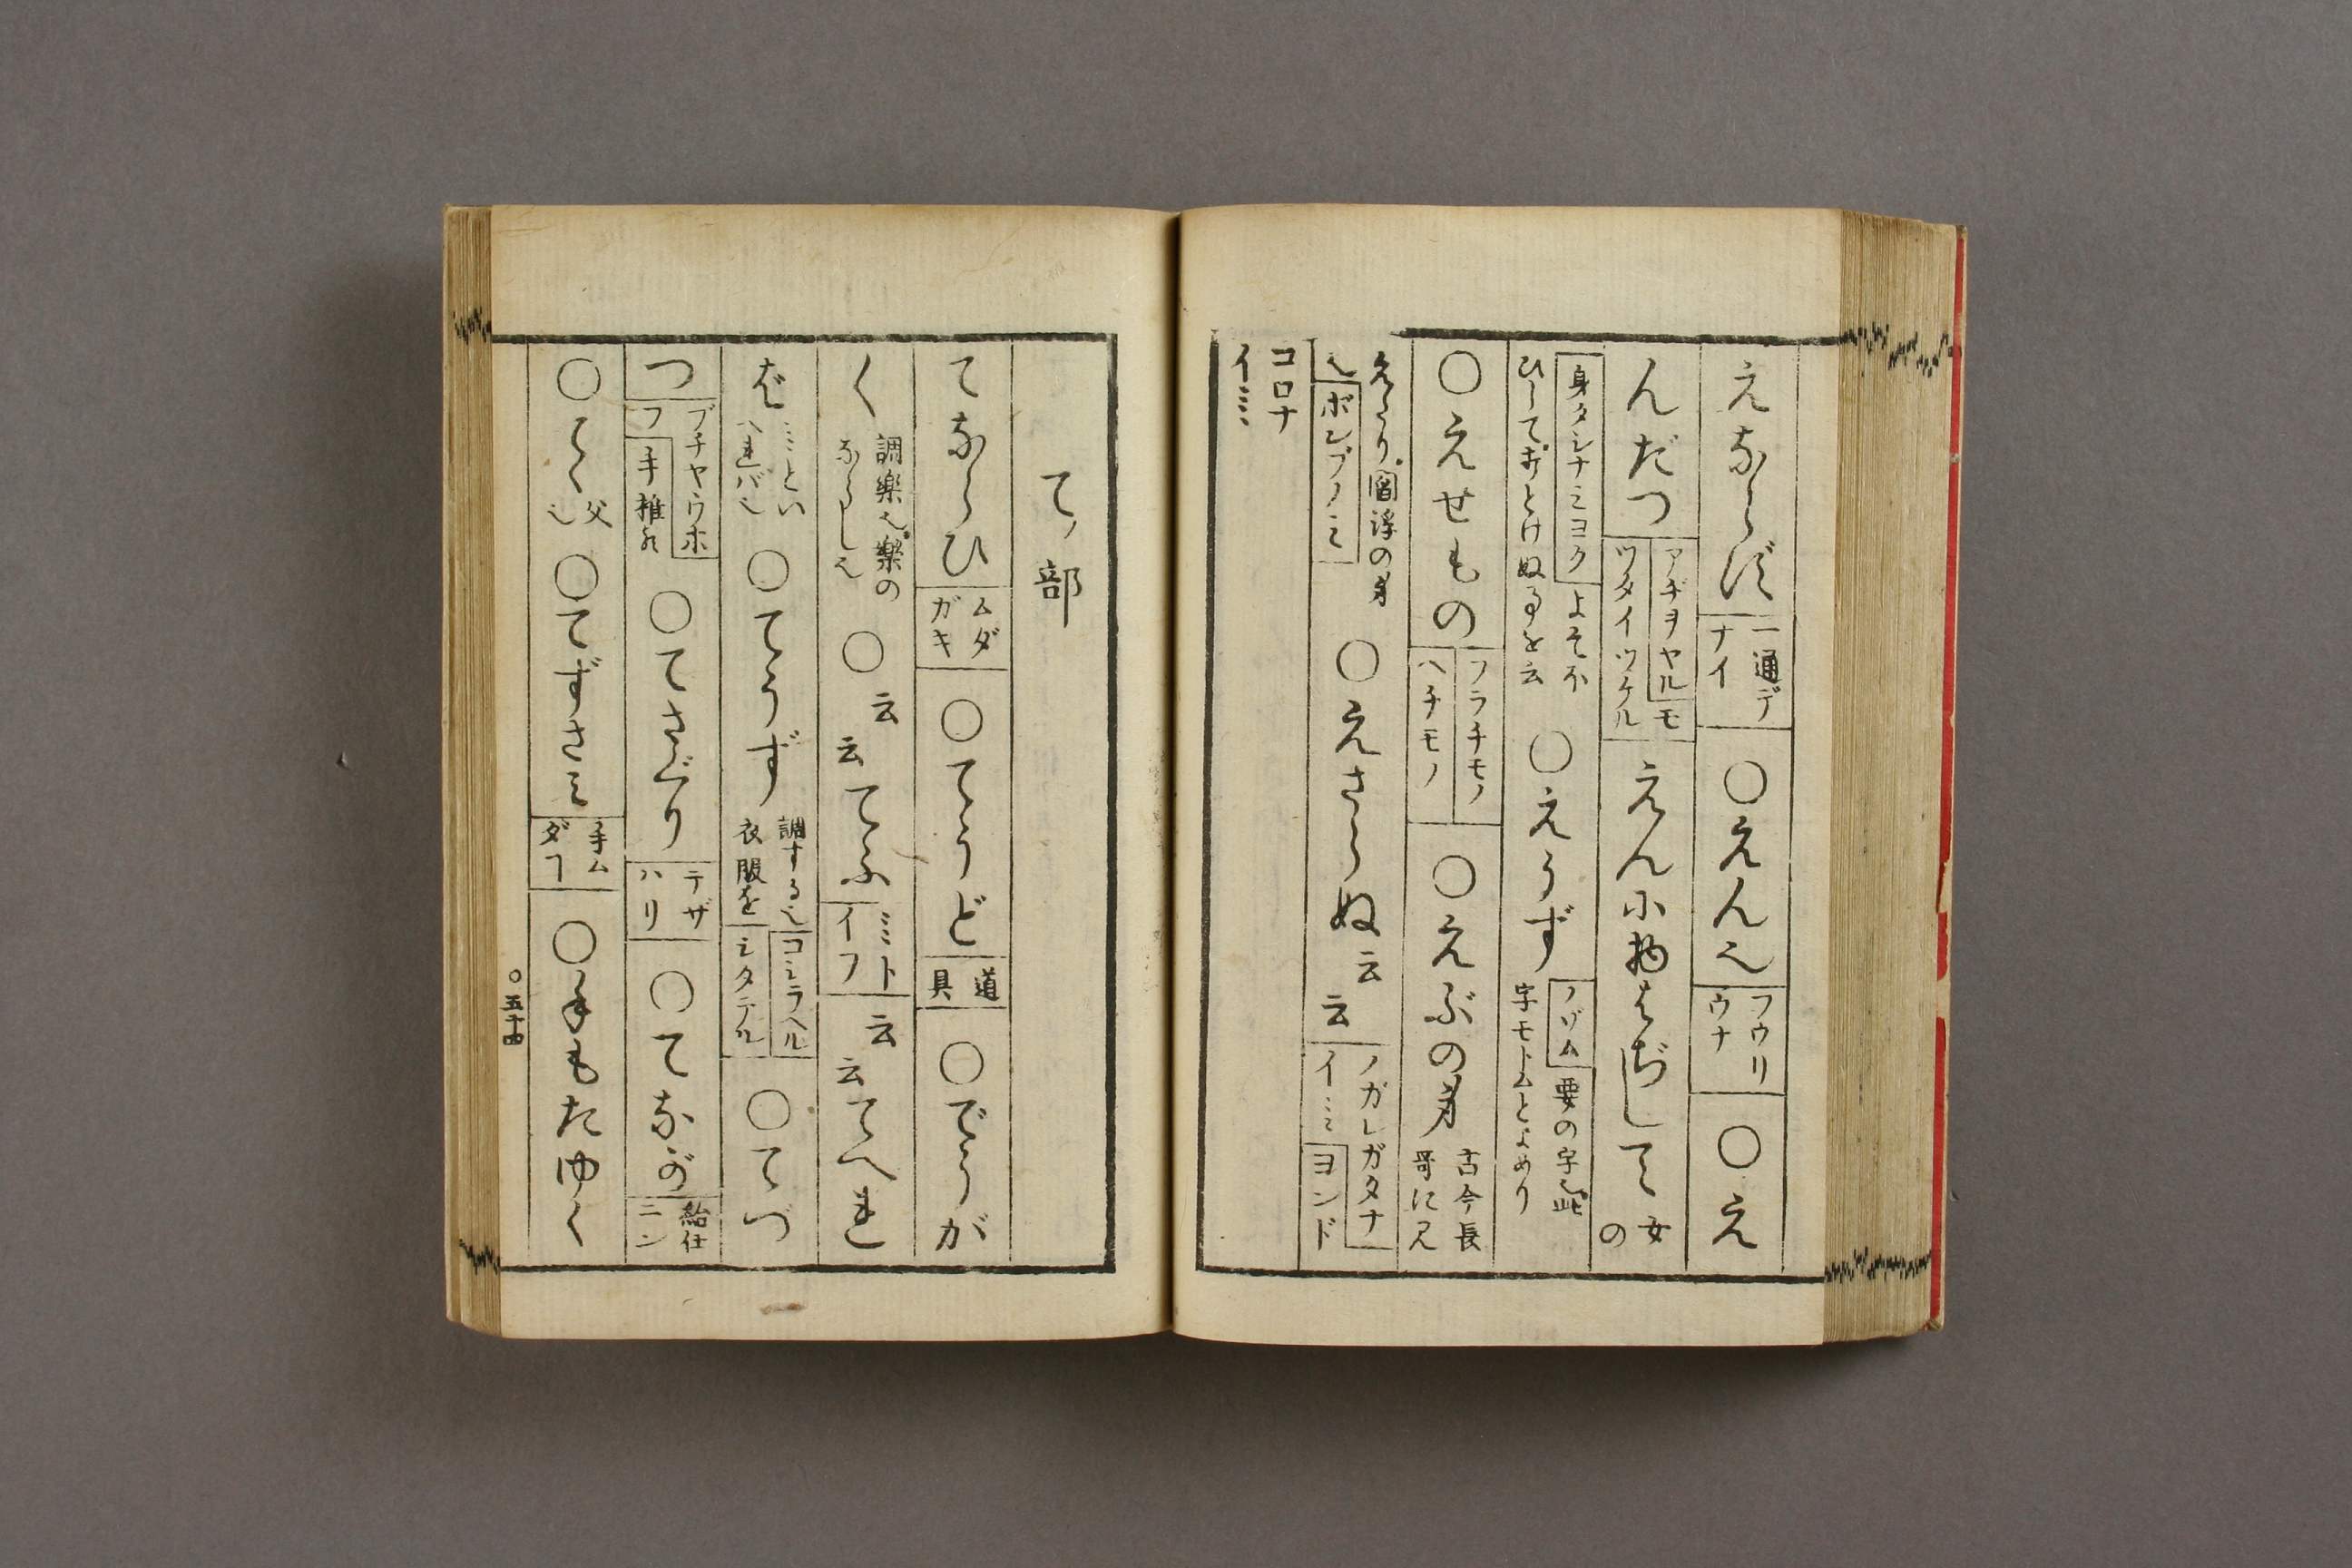 えならず 一通デナイ ○えんえ フウリウナ ○え
んだつ アヂヲヤル モツタイツケル えんに物はぢして 女の
身タシナミヨク よそほひしておとけぬるを云 ○えうず ノゾム 要の字也此字モトムとよめり
○えせもの フラチモノ ハチモノ ○えぶの身 古今長哥に見
えたり閻浮の身也 ボンブノミ ○えさらぬ云云 ノガレガタナイミミ ヨンド
コロナイミミ
て ノ部
てならひ ムダガキ ○てうど 道具 ○でうが
く 調楽也楽のならし也 ○云云てふ ミミトイフ 云云てへれ
ば ミミといへればへ也 ○てうず 調する也衣服を コシラヘル シタテル ○てづ
つ ブチヤウホフ 手稚也 ○てさぐり テザハリ ○てなが 給仕ニン
○てゝ 父也 ○てずさみ 手ムダフ ○手もたゆく
○五十四